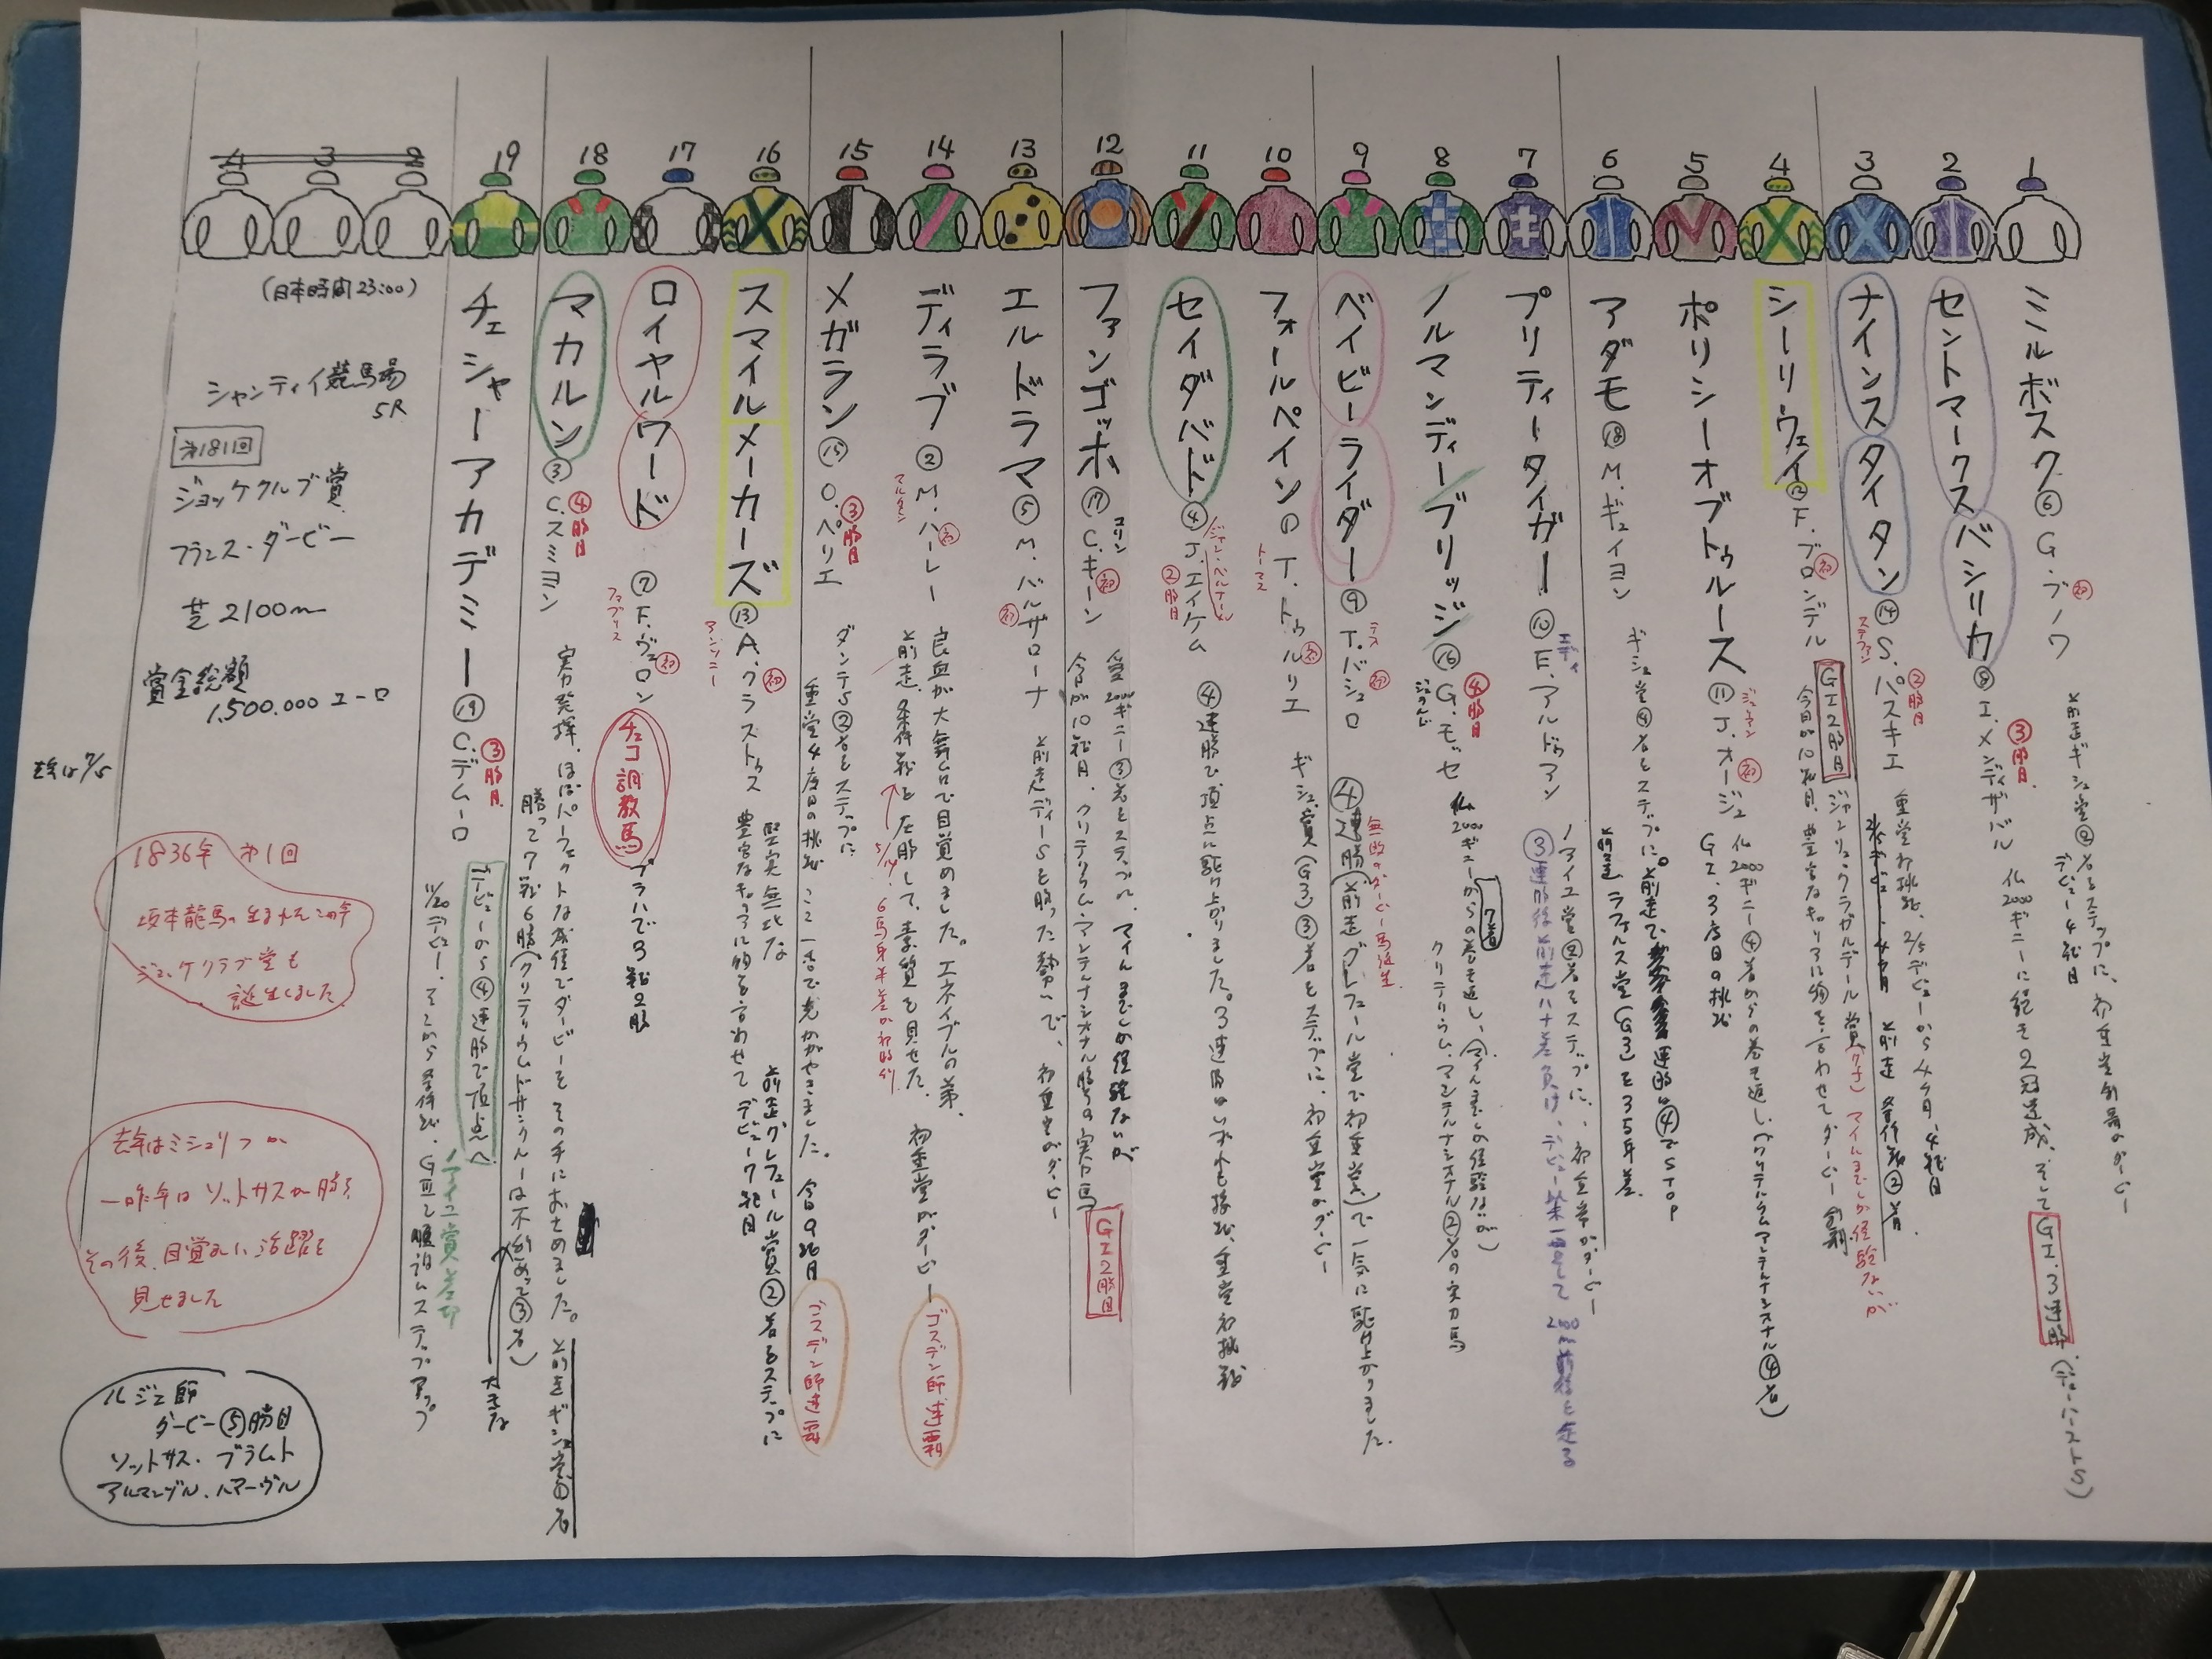 1
ミルボスク⑥G.ブノワ
初
前走ギシュ賞②着をステップに、初重賞制覇がダービー
デビュー4戦目
2
セントマークスバシリカ⑧I.メンディザバル
③勝目
仏2000ギニーに続き2冠達成、そしてGI.3連勝(デューハーストS)
3
ナインスタイタン⑭S.パスキエ
ステファン
②勝目
重賞初挑戦、2/5デビューから4ヶ月、4戦目
前走 条件戦②着
4
シーリウェイ⑫F.ブロンデル
初
GI2勝目
ジャンリュックラガルデール賞(2才)マイルまでしか経験ないが
今日が10戦目、豊富なキャリアに物を言わせてダービー制覇
5
ポリシーオブトゥルース⑪J.オージェ
ジェローム
初
仏2000ギニー④着からの巻き返し(クリテリウムアンテルナシオナル④着)
GI.3度目の挑戦
6
アダモ⑱M.ギュイヨン
ギシュ賞④着をステップに。前走で連勝は④でSTOP
前走ラフィルス賞(G3)を3.5馬身差
7
プリティータイガー⑩E.アルドゥアン
エディ
ノアイユ賞②着をステップに、初重賞がダービー
③連勝後前走ハナ差負け、デビュー以来一貫して2000m前後を走る
8
ノルマンディーブリッジ⑯G.モッセ
ジェラルド
④勝目
仏2000ギニー7着からの巻き返し、(マイルまでの経験だが)
クリテリウム.アンテルナシオナル②着の実力馬
9
ベイビーライダー⑨T.バシュロ
テオ
初
無敗のダービー馬誕生
④連勝(前走グレフュール賞で初重賞)で一気に駆け上がりました
10
フォールペイン①T.トゥルリエ
トーマス
初
ギシュ賞(G3)③着をステップに、初重賞がダービー
11
セイダバド④J.エイケム
ジャン・ベルナール
②勝目
④連勝で頂点に駆け上がりました。3連勝はいずれも接戦、重賞初挑戦
12
ファンゴッホ⑰C.キーン
コリン
初
愛2000ギニー③着をステップ、マイルまでしか経験ないが
今日が10戦目、クリテリウム・アンテルナシオナル勝ちの実力馬
GI2勝目
13
エルドラマ⑤M.バルザローナ
初
前走ディーSを勝った勢いで、初重賞がダービー
14
ディラブ②M.ハーレー
マルタン
初
良血が大舞台で目覚めました。エネイブルの弟、初重賞がダービー
ゴスデン師連覇
前走、条件戦を圧勝して、素質を見せた
5/14.6馬身半差が初勝利
15
メガラン⑮O.ペリエ
③勝目
ダンテS②着をステップに
重賞4度目の挑戦 ここ一番で光かがやきました。今日9戦目
ゴスデン師連覇
16
スマイルメーカーズ⑬A.クラストゥス
アンソニー
初
堅実無比な 前走グレフュール賞②着をステップに
豊富なキャリアに物を言わせてデビュー7戦目
17
ロイヤルワード⑦F.ヴェロン
ファブリス
初
チェコ調教馬
プラハで3戦2勝
18
マカルン③C.スミヨン
④勝目
実力発揮、ほぼパーフェクトな成績でダービーをその手におさめました。前走ギシュ賞①着
勝って7戦6勝(クリテリウムドサンクルーは不向きあって③着)
大きな
19
チェシャーアカデミー⑲C.デムーロ
③勝目
デビューから④連勝で頂点へ
ノアイユ賞差切
11/20デビュー、そこから条件戦、GⅢと順調ステップアップ
4 3 2
(日本時間23:00)
シャンティイ競馬場
5R
第181回
ジョッケクルブ賞
フランス・ダービー
芝2100m
賞金総額
1,500,000ユーロ
去年は7/5
1836年 第1回
坂本龍馬の生まれたこの年
ジョッケクラブ賞も
誕生しました
去年はミシュリフが
一昨年はソットサスが勝ち
その後、目覚ましい活躍を
見せました
ルジェ師
ダービー⑤勝目
ソットサス.ブラムト
アルマンゾル.ルアーヴル